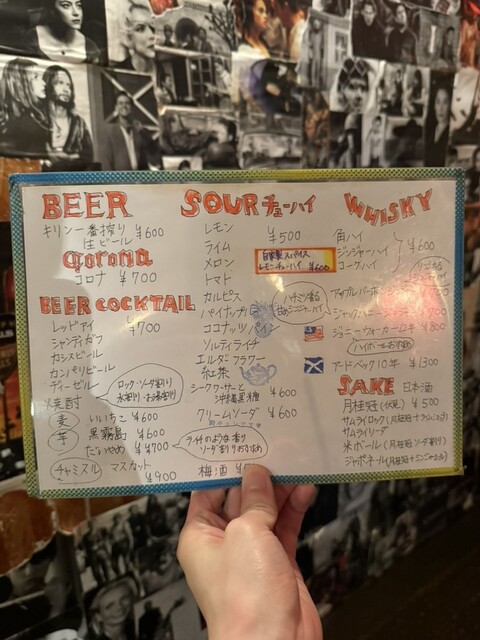 BEER
キリン一番搾り ¥600
生ビール
Corona
コロナ ¥700
BEER COCKTAIL
レッドアイ ¥700
シャンディガフ
カシスビール
カンパリビール
ディーゼル
焼酎
ロック・ソーダ割り
水割り・お湯割り
麦 いいちこ ¥600
芋 黒霧島 ¥600
だいやめ ¥700
ライチのような香り
ソーダ割りおすすめ
チャミスル マスカット ¥900
SOUR チューハイ
レモン ¥500
ライム
メロン
自家製スパイス
レモンチューハイ ¥600
トマト
カルピス
パイナップル
ココナッツパイン
ソルティライチ
エルダーフラワー
紅茶
シークワーサーと
沖縄黒糖 ¥600
クリームソーダ ¥600
梅酒
WHISKY
角ハイ
ジンジャーハイ ¥600
コークハイ
ジョニーウォーカー12年 ¥800
ハイボールおすすめ
アードベック10年 ¥1300
SAKE 日本酒
月桂冠(伏見) ¥500
サムライロック(月桂冠+ライムコンク)
サムライソーダ
米ボール(月桂冠ソーダ割り)
ジャポネール(月桂冠+ジンジャーエール)